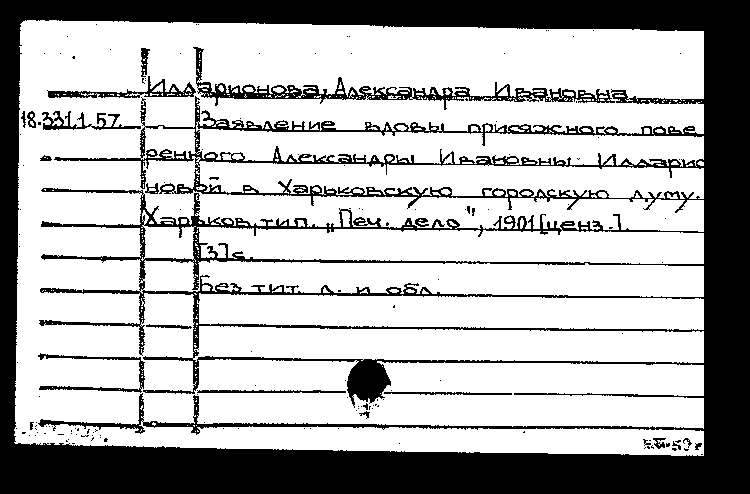 Илларионова, Александра Ивановна.
18.331.1.57. Заявление вдовы присяжного пове
ренного Александры Ивановны Илларио
новой в Харьковскую городскую думу.
Харьков, тип. „Печ. дело", 1901 [ценз.].
[3] с.
Без тит. л. и обл.